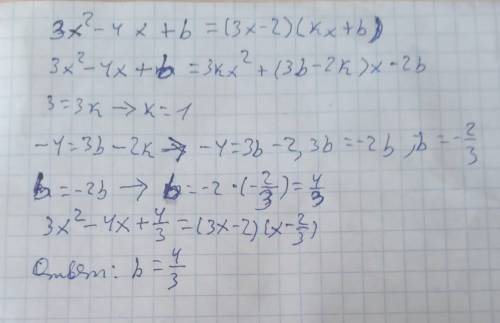 3x² - 4x + b = (3x-2)(kx+b)
3x² - 4x + b = 3kx² + (3b-2k)x - 2b
3 = 3k → k = 1
-4 = 3b - 2k → -4 = 3b - 2, 3b = -2b, b = -2/3
b = -2b → b = -2·(-2/3) = 4/3
3x² - 4x + 4/3 = (3x-2)(x - 2/3)
Ответ: b = 4/3